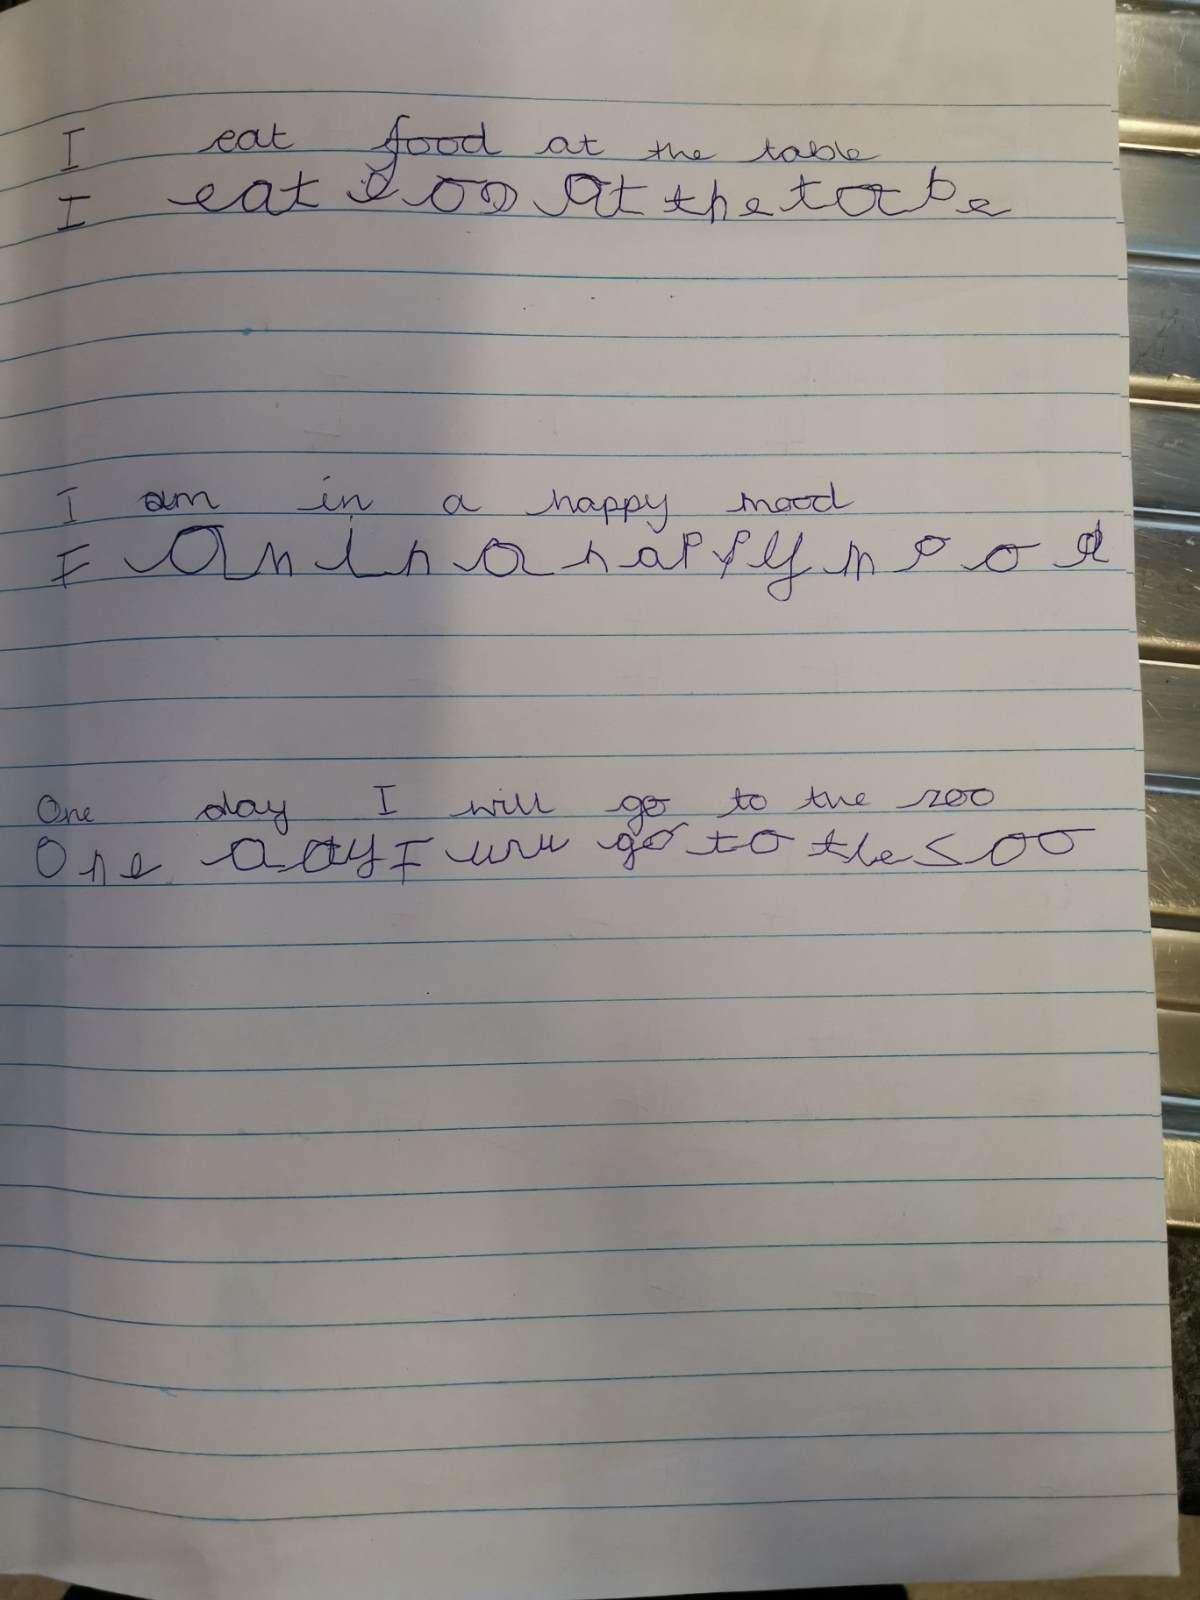 I eat food at the table
I eat foo at the tabe
I am in a happy mood
I an in a happy mood
One day I will go to the zoo
One aday I will go to the zoo